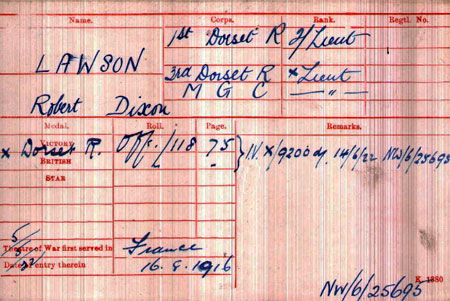 Name. Corps. Rank. Regtl. No.
1st Dorset R 2/Lieut
LAWSON
3rd Dorset R x Lieut
M G C — " —
Robert Dixon
Medal. Roll. Page. Remarks.
VICTORY
x Dorset R. Off./118 75 IV. X/9200 dy. 14/6/22 NW/6/25695
BRITISH - "
STAR
Theatre of War first served in France
Date of entry therein 16.8.1916
K. 1380
NW/6/25695